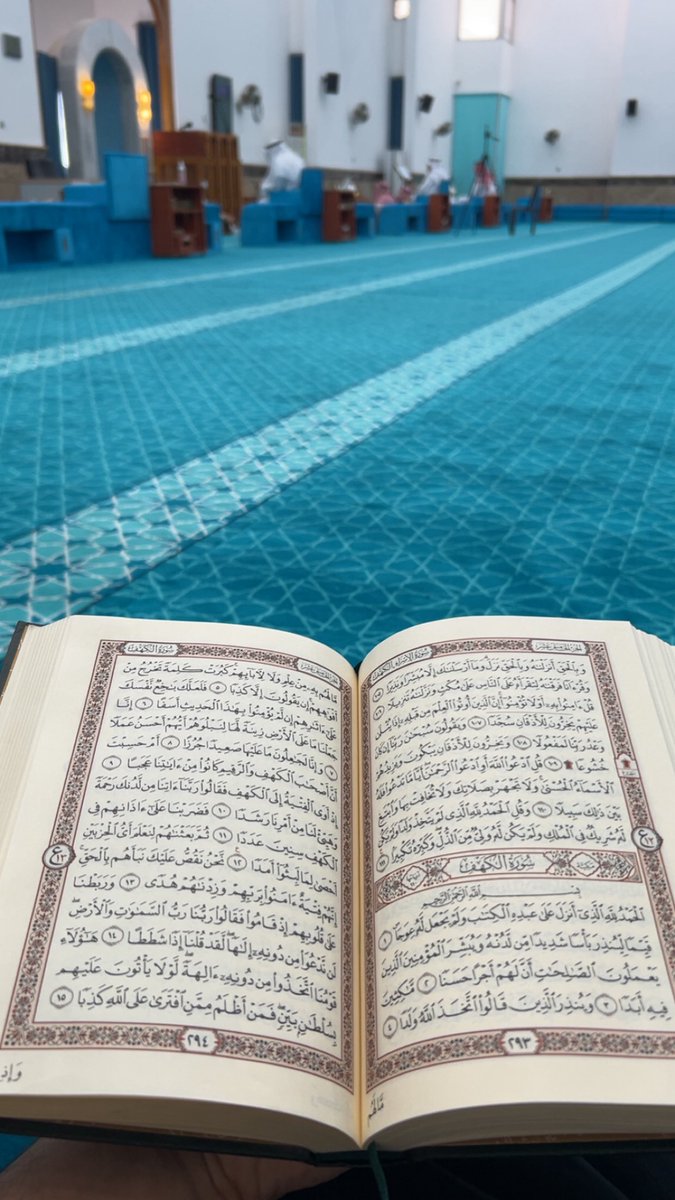 الجزء الخامس عشر
سُورَةُ الإِسْرَاءِ
وَبِٱلْحَقِّ أَنزَلْنَٰهُ وَبِٱلْحَقِّ نَزَلَ وَمَآ أَرْسَلْنَٰكَ إِلَّا مُبَشِّرًا وَنَذِيرًا ١٠٥
وَقُرْءَانًا فَرَقْنَٰهُ لِتَقْرَأَهُۥ عَلَى ٱلنَّاسِ عَلَىٰ مُكْثٍ وَنَزَّلْنَٰهُ تَنزِيلًا ١٠٦
قُلْ ءَامِنُوا۟ بِهِۦٓ أَوْ لَا تُؤْمِنُوٓا۟ إِنَّ ٱلَّذِينَ أُوتُوا۟ ٱلْعِلْمَ مِن قَبْلِهِۦٓ إِذَا يُتْلَىٰ
عَلَيْهِمْ يَخِرُّونَ لِلْأَذْقَانِ سُجَّدًا ١٠٧ وَيَقُولُونَ سُبْحَٰنَ رَبِّنَآ إِن كَانَ
وَعْدُ رَبِّنَا لَمَفْعُولًا ١٠٨ وَيَخِرُّونَ لِلْأَذْقَانِ يَبْكُونَ وَيَزِيدُهُمْ
خُشُوعًا ۩ ١٠٩ قُلِ ٱدْعُوا۟ ٱللَّهَ أَوِ ٱدْعُوا۟ ٱلرَّحْمَٰنَ أَيًّا مَّا تَدْعُوا۟ فَلَهُ
ٱلْأَسْمَآءُ ٱلْحُسْنَىٰ وَلَا تَجْهَرْ بِصَلَاتِكَ وَلَا تُخَافِتْ بِهَا وَٱبْتَغِ
بَيْنَ ذَٰلِكَ سَبِيلًا ١١٠ وَقُلِ ٱلْحَمْدُ لِلَّهِ ٱلَّذِى لَمْ يَتَّخِذْ وَلَدًا وَلَمْ يَكُن
لَّهُۥ شَرِيكٌ فِى ٱلْمُلْكِ وَلَمْ يَكُن لَّهُۥ وَلِىٌّ مِّنَ ٱلذُّلِّ وَكَبِّرْهُ تَكْبِيرًا ١١١
سُورَةُ الكَهْفِ
بِسْمِ ٱللَّهِ ٱلرَّحْمَٰنِ ٱلرَّحِيمِ
ٱلْحَمْدُ لِلَّهِ ٱلَّذِىٓ أَنزَلَ عَلَىٰ عَبْدِهِ ٱلْكِتَٰبَ وَلَمْ يَجْعَل لَّهُۥ عِوَجَا ١
قَيِّمًا لِّيُنذِرَ بَأْسًا شَدِيدًا مِّن لَّدُنْهُ وَيُبَشِّرَ ٱلْمُؤْمِنِينَ ٱلَّذِينَ
يَعْمَلُونَ ٱلصَّٰلِحَٰتِ أَنَّ لَهُمْ أَجْرًا حَسَنًا ٢ مَّٰكِثِينَ
فِيهِ أَبَدًا ٣ وَيُنذِرَ ٱلَّذِينَ قَالُوا۟ ٱتَّخَذَ ٱللَّهُ وَلَدًا ٤
٢٩٣
مَّالَهُم
سُورَةُ الكَهْفِ
الجزء الخامس عشر
مَّا لَهُم بِهِۦ مِنْ عِلْمٍ وَلَا لِءَابَآئِهِمْ كَبُرَتْ كَلِمَةً تَخْرُجُ مِنْ
أَفْوَٰهِهِمْ إِن يَقُولُونَ إِلَّا كَذِبًا ٥ فَلَعَلَّكَ بَٰخِعٌ نَّفْسَكَ
عَلَىٰٓ ءَاثَٰرِهِمْ إِن لَّمْ يُؤْمِنُوا۟ بِهَٰذَا ٱلْحَدِيثِ أَسَفًا ٦ إِنَّا
جَعَلْنَا مَا عَلَى ٱلْأَرْضِ زِينَةً لَّهَا لِنَبْلُوَهُمْ أَيُّهُمْ أَحْسَنُ عَمَلًا
٧ وَإِنَّا لَجَٰعِلُونَ مَا عَلَيْهَا صَعِيدًا جُرُزًا ٨ أَمْ حَسِبْتَ
أَنَّ أَصْحَٰبَ ٱلْكَهْفِ وَٱلرَّقِيمِ كَانُوا۟ مِنْ ءَايَٰتِنَا عَجَبًا ٩
إِذْ أَوَى ٱلْفِتْيَةُ إِلَى ٱلْكَهْفِ فَقَالُوا۟ رَبَّنَآ ءَاتِنَا مِن لَّدُنكَ رَحْمَةً
وَهَيِّئْ لَنَا مِنْ أَمْرِنَا رَشَدًا ١٠ فَضَرَبْنَا عَلَىٰٓ ءَاذَانِهِمْ فِى
ٱلْكَهْفِ سِنِينَ عَدَدًا ١١ ثُمَّ بَعَثْنَٰهُمْ لِنَعْلَمَ أَىُّ ٱلْحِزْبَيْنِ
أَحْصَىٰ لِمَا لَبِثُوٓا۟ أَمَدًا ١٢ نَّحْنُ نَقُصُّ عَلَيْكَ نَبَأَهُم بِٱلْحَقِّ
إِنَّهُمْ فِتْيَةٌ ءَامَنُوا۟ بِرَبِّهِمْ وَزِدْنَٰهُمْ هُدًى ١٣ وَرَبَطْنَا
عَلَىٰ قُلُوبِهِمْ إِذْ قَامُوا۟ فَقَالُوا۟ رَبُّنَا رَبُّ ٱلسَّمَٰوَٰتِ وَٱلْأَرْضِ
لَن نَّدْعُوَا۟ مِن دُونِهِۦٓ إِلَٰهًا لَّقَدْ قُلْنَآ إِذًا شَطَطًا ١٤ هَٰٓؤُلَآءِ
قَوْمُنَا ٱتَّخَذُوا۟ مِن دُونِهِۦٓ ءَالِهَةً لَّوْلَا يَأْتُونَ عَلَيْهِم
بِسُلْطَٰنٍۭ بَيِّنٍ فَمَنْ أَظْلَمُ مِمَّنِ ٱفْتَرَىٰ عَلَى ٱللَّهِ كَذِبًا ١٥
٢٩٤